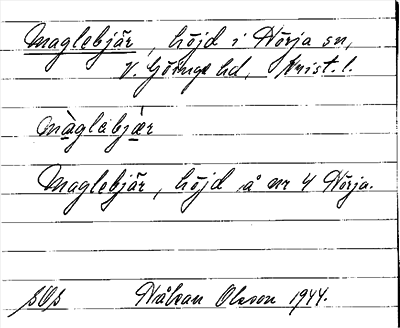 Maglebjär, höjd i Nörja sn,
V. Göinge hd, Krist. l.
màglebjǽr
Maglebjär, höjd å nr 4 Nörja.
SOS Håkan Olsson 1944.